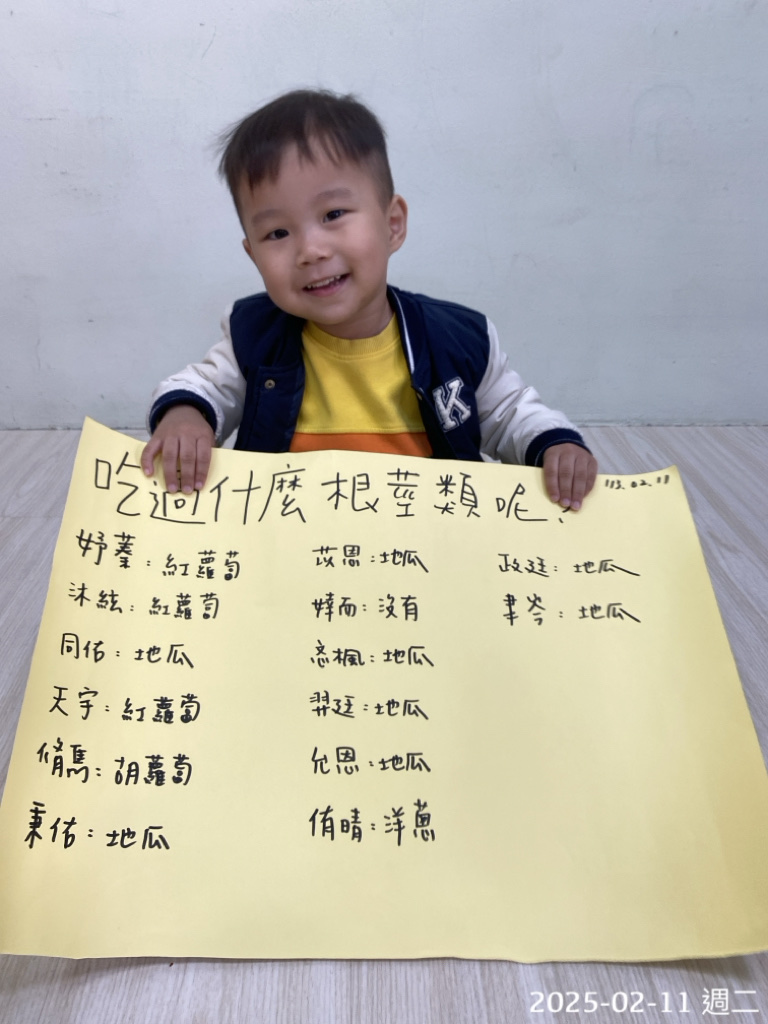 K
吃過什麼根莖類呢?
113.02.11
妤蓁:紅蘿蔔
沐紘:紅蘿蔔
同佑:地瓜
天宇:紅蘿蔔
脩馬:胡蘿蔔
秉佑:地瓜
苡恩:地瓜
婞而:沒有
悆楓:地瓜
羿廷:地瓜
允恩:地瓜
侑晴:洋蔥
政廷:地瓜
聿岑:地瓜
2025-02-11 週二